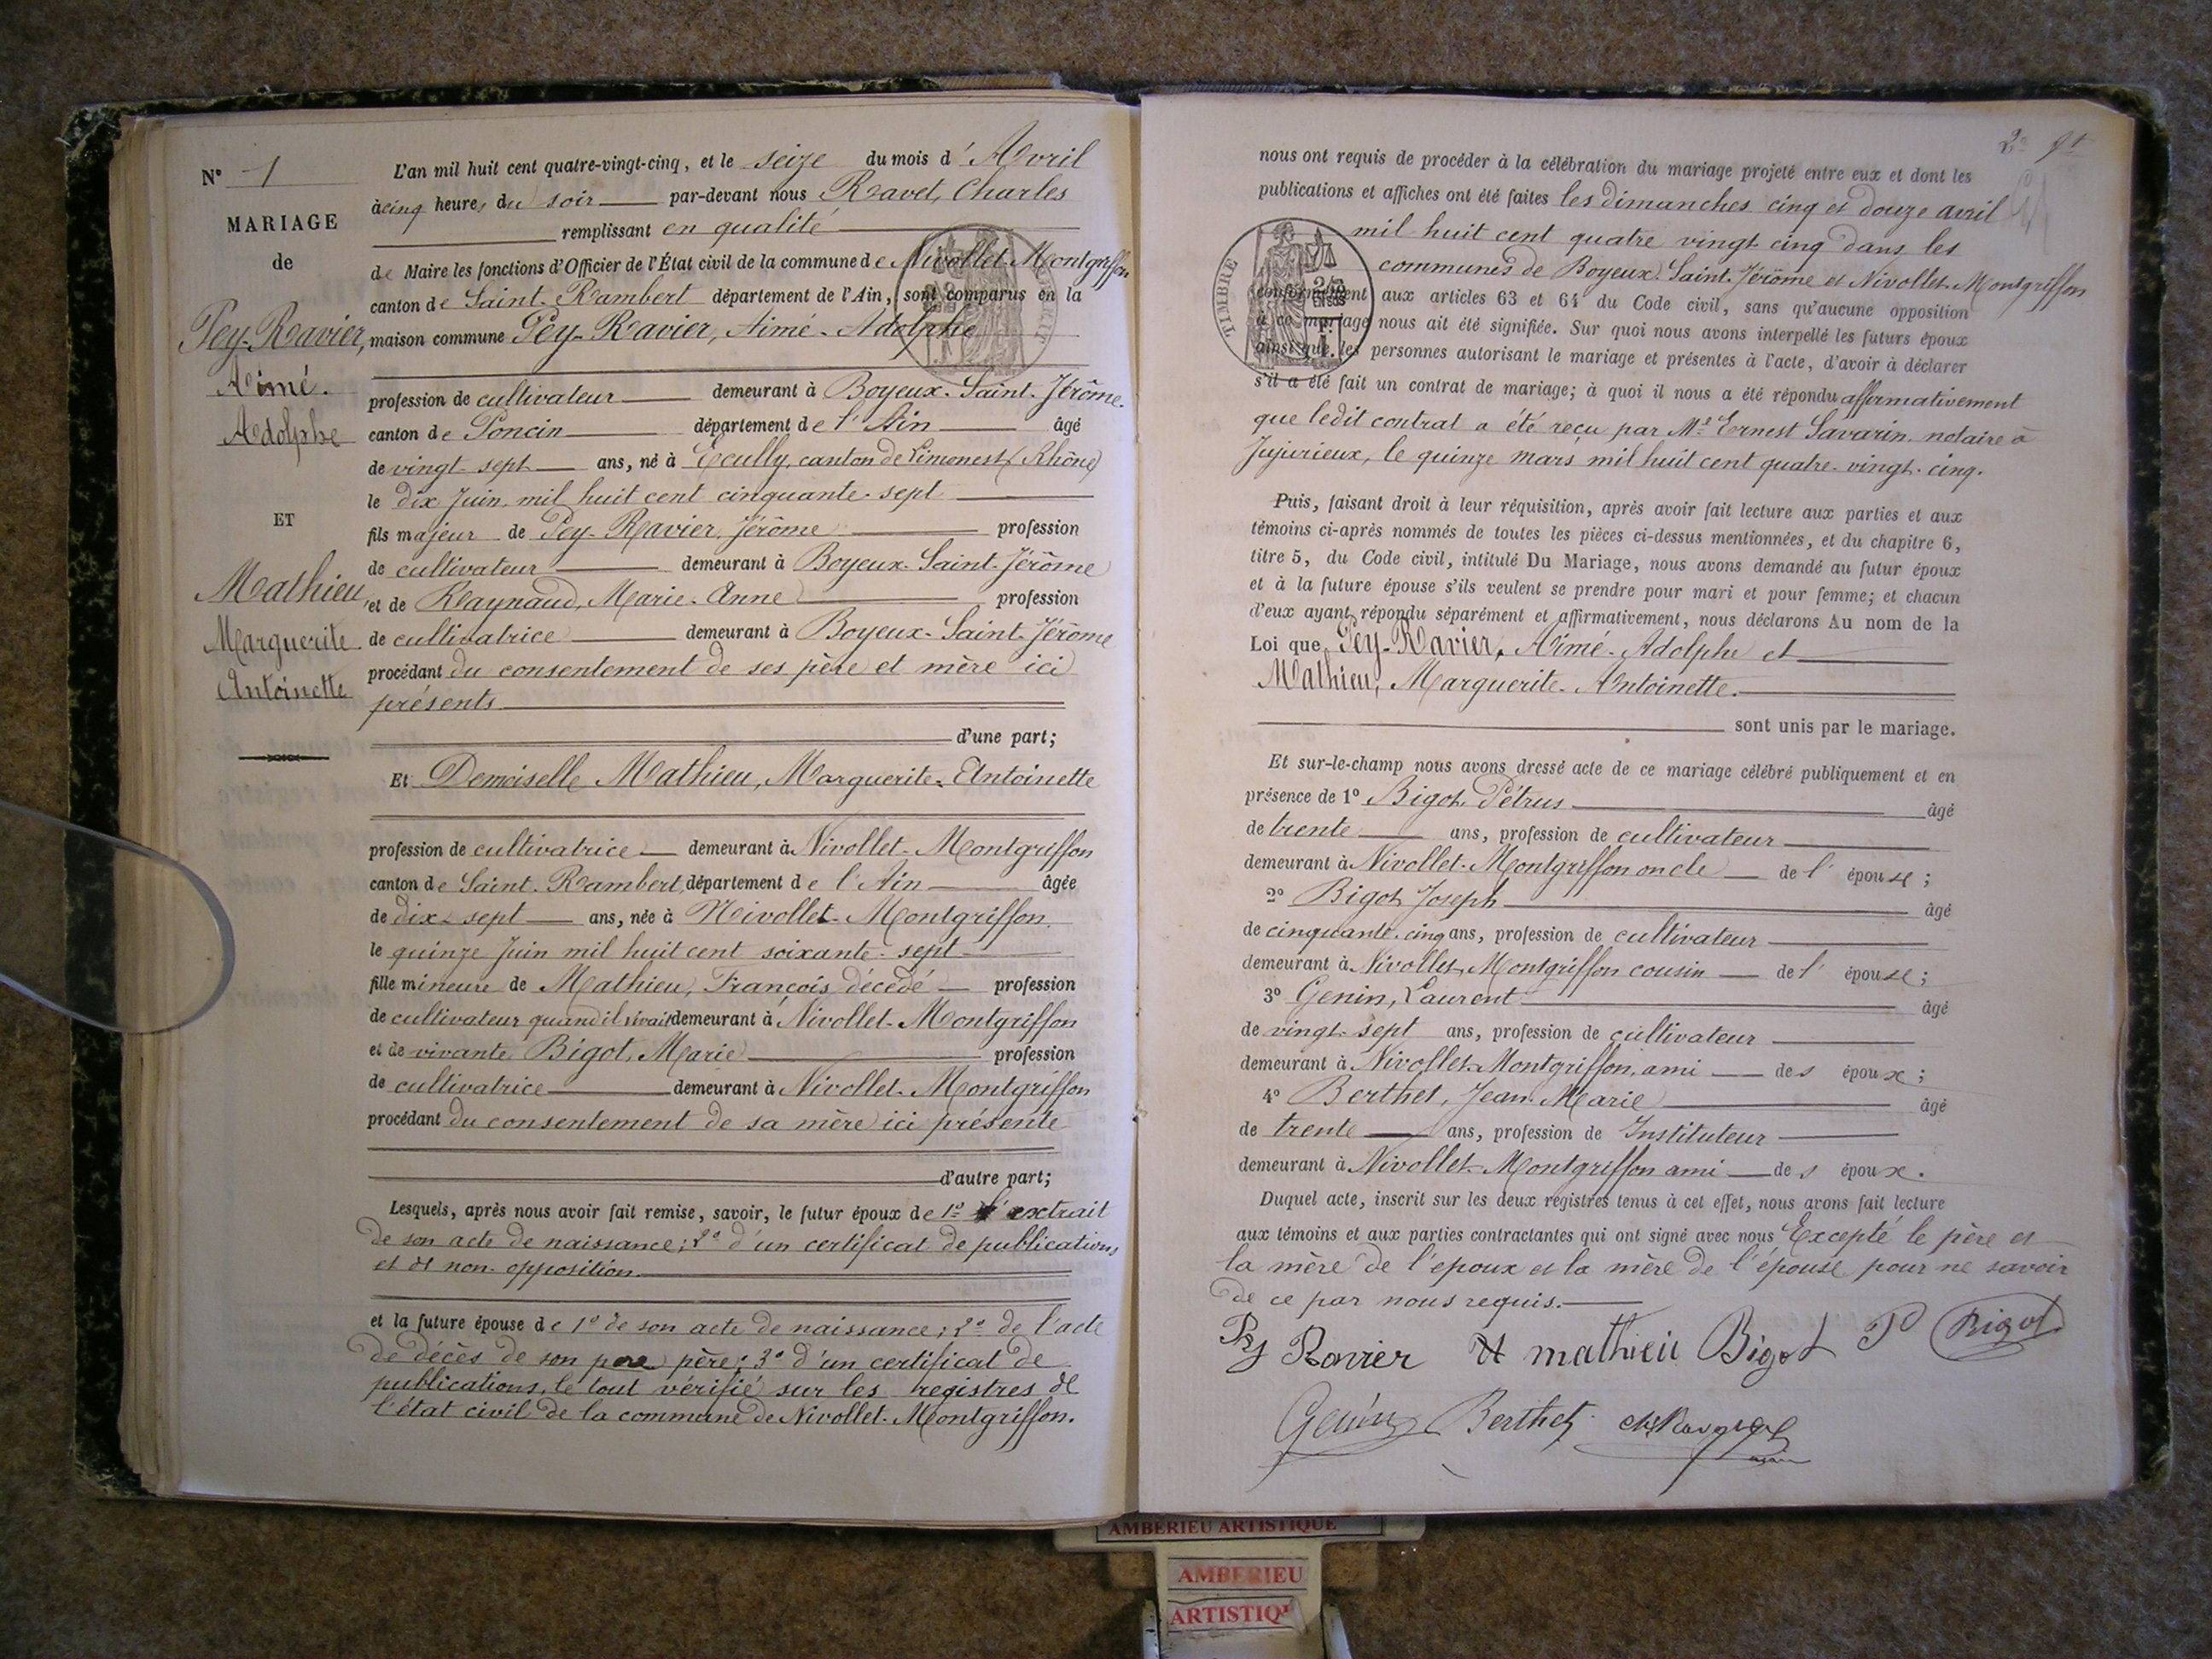 N° 1
MARIAGE
de
Pey-Ravier,
Aimé.
Adolphe
ET
Mathieu,
Marguerite
Antoinette
L'an mil huit cent quatre-vingt-cinq, et le seize du mois d'Avril
à cinq heures du soir par-devant nous Ravet, Charles
remplissant en qualité
de Maire les fonctions d'Officier de l'État civil de la commune de Nivollet-Montgriffon
canton de Saint-Rambert département de l'Ain, sont comparus en la
maison commune Pey-Ravier, Aimé-Adolphe
profession de cultivateur demeurant à Boyeux-Saint-Jérôme.
canton de Poncin département de l'Ain âgé
de vingt-sept ans, né à Ecully, canton de Limonest (Rhône)
le dix Juin mil huit cent cinquante-sept
fils majeur de Pey-Ravier, Jérôme profession
de cultivateur demeurant à Boyeux-Saint-Jérôme
et de Raynaud, Marie-Anne profession
de cultivatrice demeurant à Boyeux-Saint-Jérôme
procédant du consentement de ses père et mère ici
présents
d'une part;
Et Demoiselle Mathieu, Marguerite-Antoinette
profession de cultivatrice demeurant à Nivollet-Montgriffon
canton de Saint-Rambert, département de l'Ain âgée
de dix-sept ans, née à Nivollet-Montgriffon.
le quinze Juin mil huit cent soixante-sept
fille mineure de Mathieu, François décédé profession
de cultivateur quand il vivait demeurant à Nivollet-Montgriffon
et de vivante Bigot, Marie profession
de cultivatrice demeurant à Nivollet-Montgriffon
procédant du consentement de sa mère ici présente
d'autre part;
Lesquels, après nous avoir fait remise, savoir, le futur époux de 1° l'extrait
de son acte de naissance; 2° d'un certificat de publications
et de non-opposition
et la future épouse de 1° de son acte de naissance; 2° de l'acte
de décès de son père; 3° d'un certificat de
publications, le tout vérifié sur les registres de
l'état civil de la commune de Nivollet-Montgriffon.
nous ont requis de procéder à la célébration du mariage projeté entre eux et dont les
publications et affiches ont été faites les dimanches cinq et douze avril
mil huit cent quatre vingt cinq dans les
communes de Boyeux-Saint-Jérôme et Nivollet-Montgriffon
TIMBRE
conformément aux articles 63 et 64 du Code civil, sans qu'aucune opposition
à ce mariage nous ait été signifiée. Sur quoi nous avons interpellé les futurs époux
ainsi que les personnes autorisant le mariage et présentes à l'acte, d'avoir à déclarer
s'il a été fait un contrat de mariage; à quoi il nous a été répondu affirmativement
que ledit contrat a été reçu par Me Ernest Savarin, notaire à
Jujurieux, le quinze mars mil huit cent quatre-vingt-cinq.
Puis, faisant droit à leur réquisition, après avoir fait lecture aux parties et aux
témoins ci-après nommés de toutes les pièces ci-dessus mentionnées, et du chapitre 6,
titre 5, du Code civil, intitulé Du Mariage, nous avons demandé au futur époux
et à la future épouse s'ils veulent se prendre pour mari et pour femme; et chacun
d'eux ayant répondu séparément et affirmativement, nous déclarons Au nom de la
Loi que Pey-Ravier, Aimé-Adolphe et
Mathieu, Marguerite-Antoinette.
sont unis par le mariage.
Et sur-le-champ nous avons dressé acte de ce mariage célébré publiquement et en
présence de 1° Bigot Pétrus âgé
de trente ans, profession de cultivateur
demeurant à Nivollet-Montgriffon oncle de l'épouse;
2° Bigot Joseph âgé
de cinquante-cinq ans, profession de cultivateur
demeurant à Nivollet-Montgriffon cousin de l'épouse;
3° Genin, Laurent âgé
de vingt-sept ans, profession de cultivateur
demeurant à Nivollet-Montgriffon, ami des époux;
4° Berthet, Jean-Marie âgé
de trente ans, profession de Instituteur
demeurant à Nivollet-Montgriffon ami des époux.
Duquel acte, inscrit sur les deux registres tenus à cet effet, nous avons fait lecture
aux témoins et aux parties contractantes qui ont signé avec nous Excepté le père et
la mère de l'époux et la mère de l'épouse pour ne savoir
de ce par nous requis.
Pey Ravier mathieu Bigot P Bigot
Genin Berthet
AMBERIEU ARTISTIQUE
AMBERIEU
ARTISTIQU